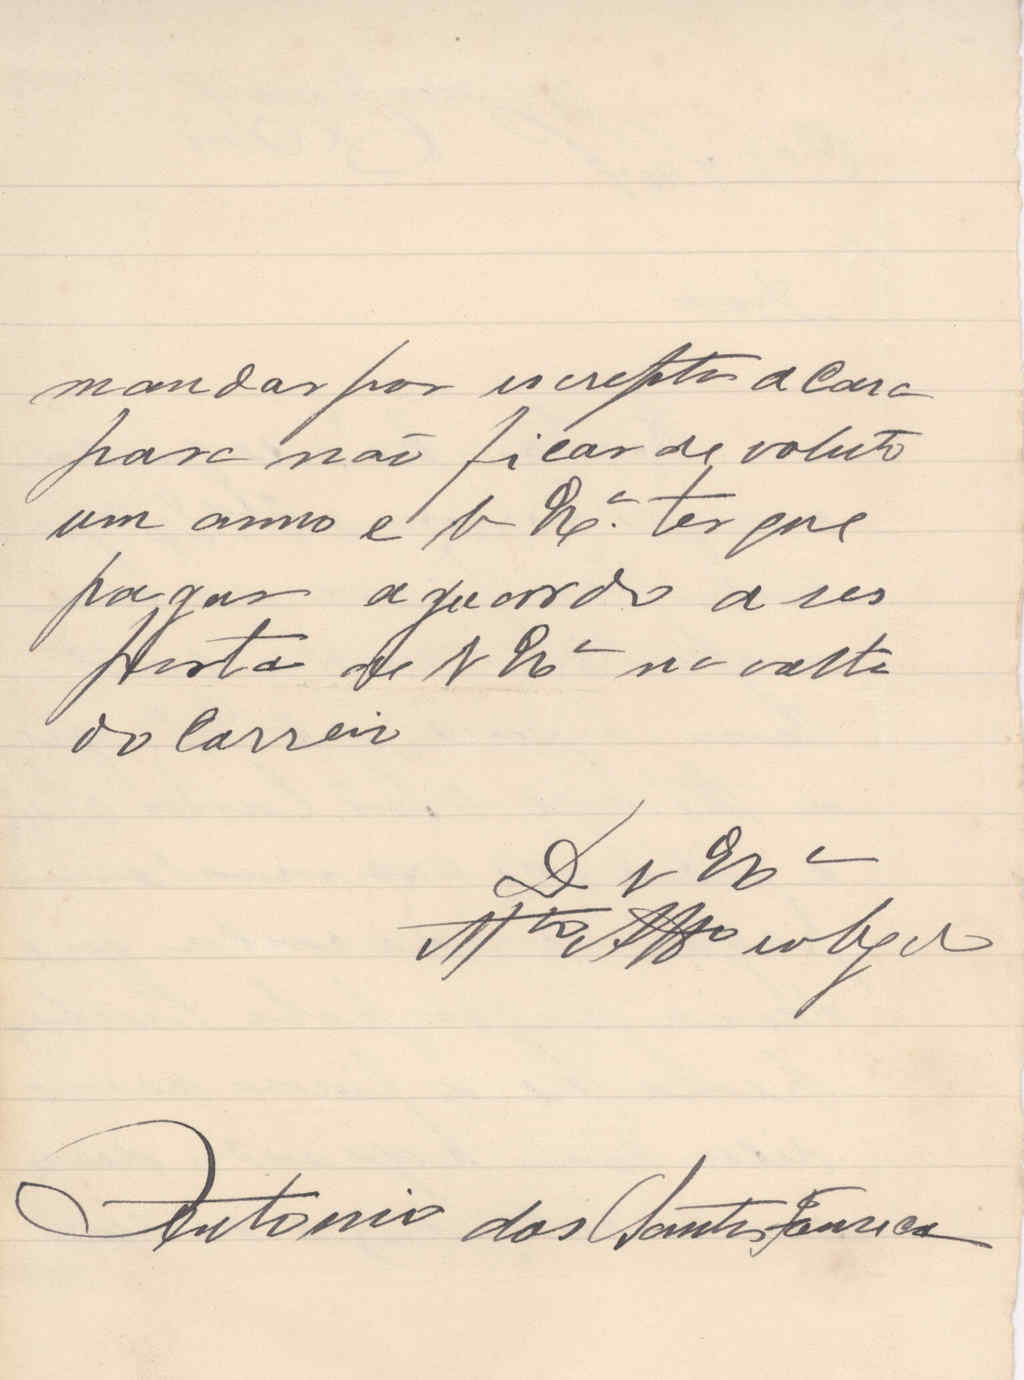 mandar por escrepto a Casa
para não ficar de voluto
um anno e V Exª. ter que
pagar aguardo a res
posta de V Exª na volta
do Correio
D V Exª
Mto Atto obgdo
Antonio dos Santos Fonseca